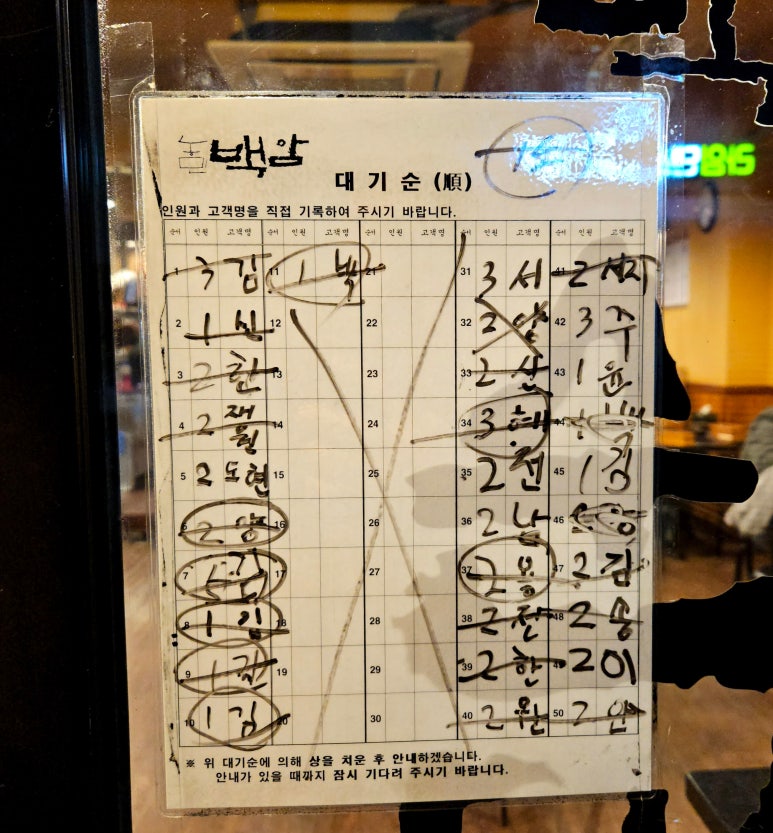 백암
대기순 (順)
인원과 고객명을 직접 기록하여 주시기 바랍니다.
순서 인원 고객명 순서 인원 고객명 순서 인원 고객명 순서 인원 고객명 순서 인원 고객명
1 3 김 11 1 박 21 31 3 서 41 2
2 1 신 12 22 32 2 양 42 3 주
3 2 한 13 23 33 2 산 43 1 윤
4 2 14 24 34 3 혜 44
5 2 도현 15 25 35 2 전 45 1 김
6 2 양 16 26 36 2 남 46
7 5 김 17 27 37 2 용 47 2 김
8 1 김 18 28 38 2 전 48 2 송
9 1 19 29 39 2 한 49 2 이
10 1 김 20 30 40 2 완 50 2 안
※ 위 대기순에 의해 상을 치운 후 안내하겠습니다.
안내가 있을 때까지 잠시 기다려 주시기 바랍니다.